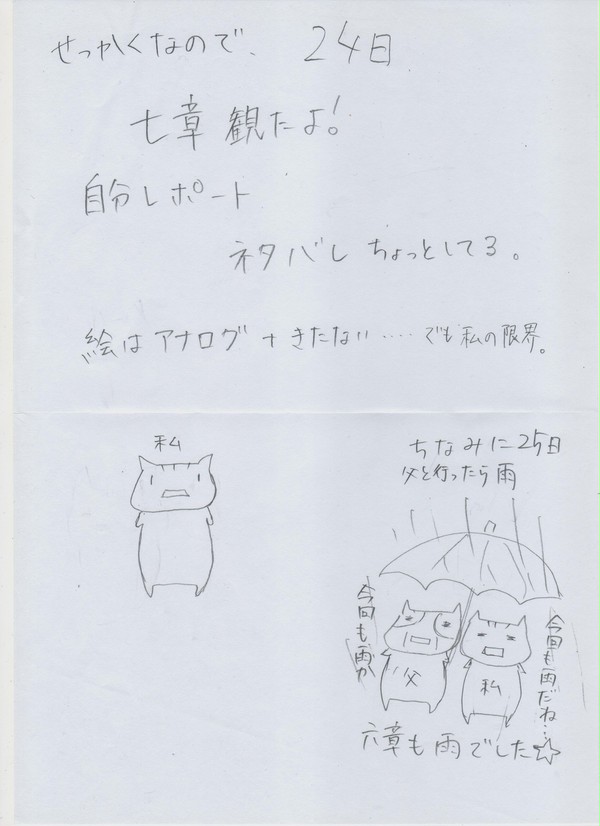 せっかくなので、 24日
七章 観たよ!
自分レポート
ネタバレ ちょっとしてる。
絵はアナログ+きたない‥‥でも私の限界。
私
ちなみに25日
父と行ったら雨
今回も雨か
今回も雨だね…
父
私
六章も雨でした☆